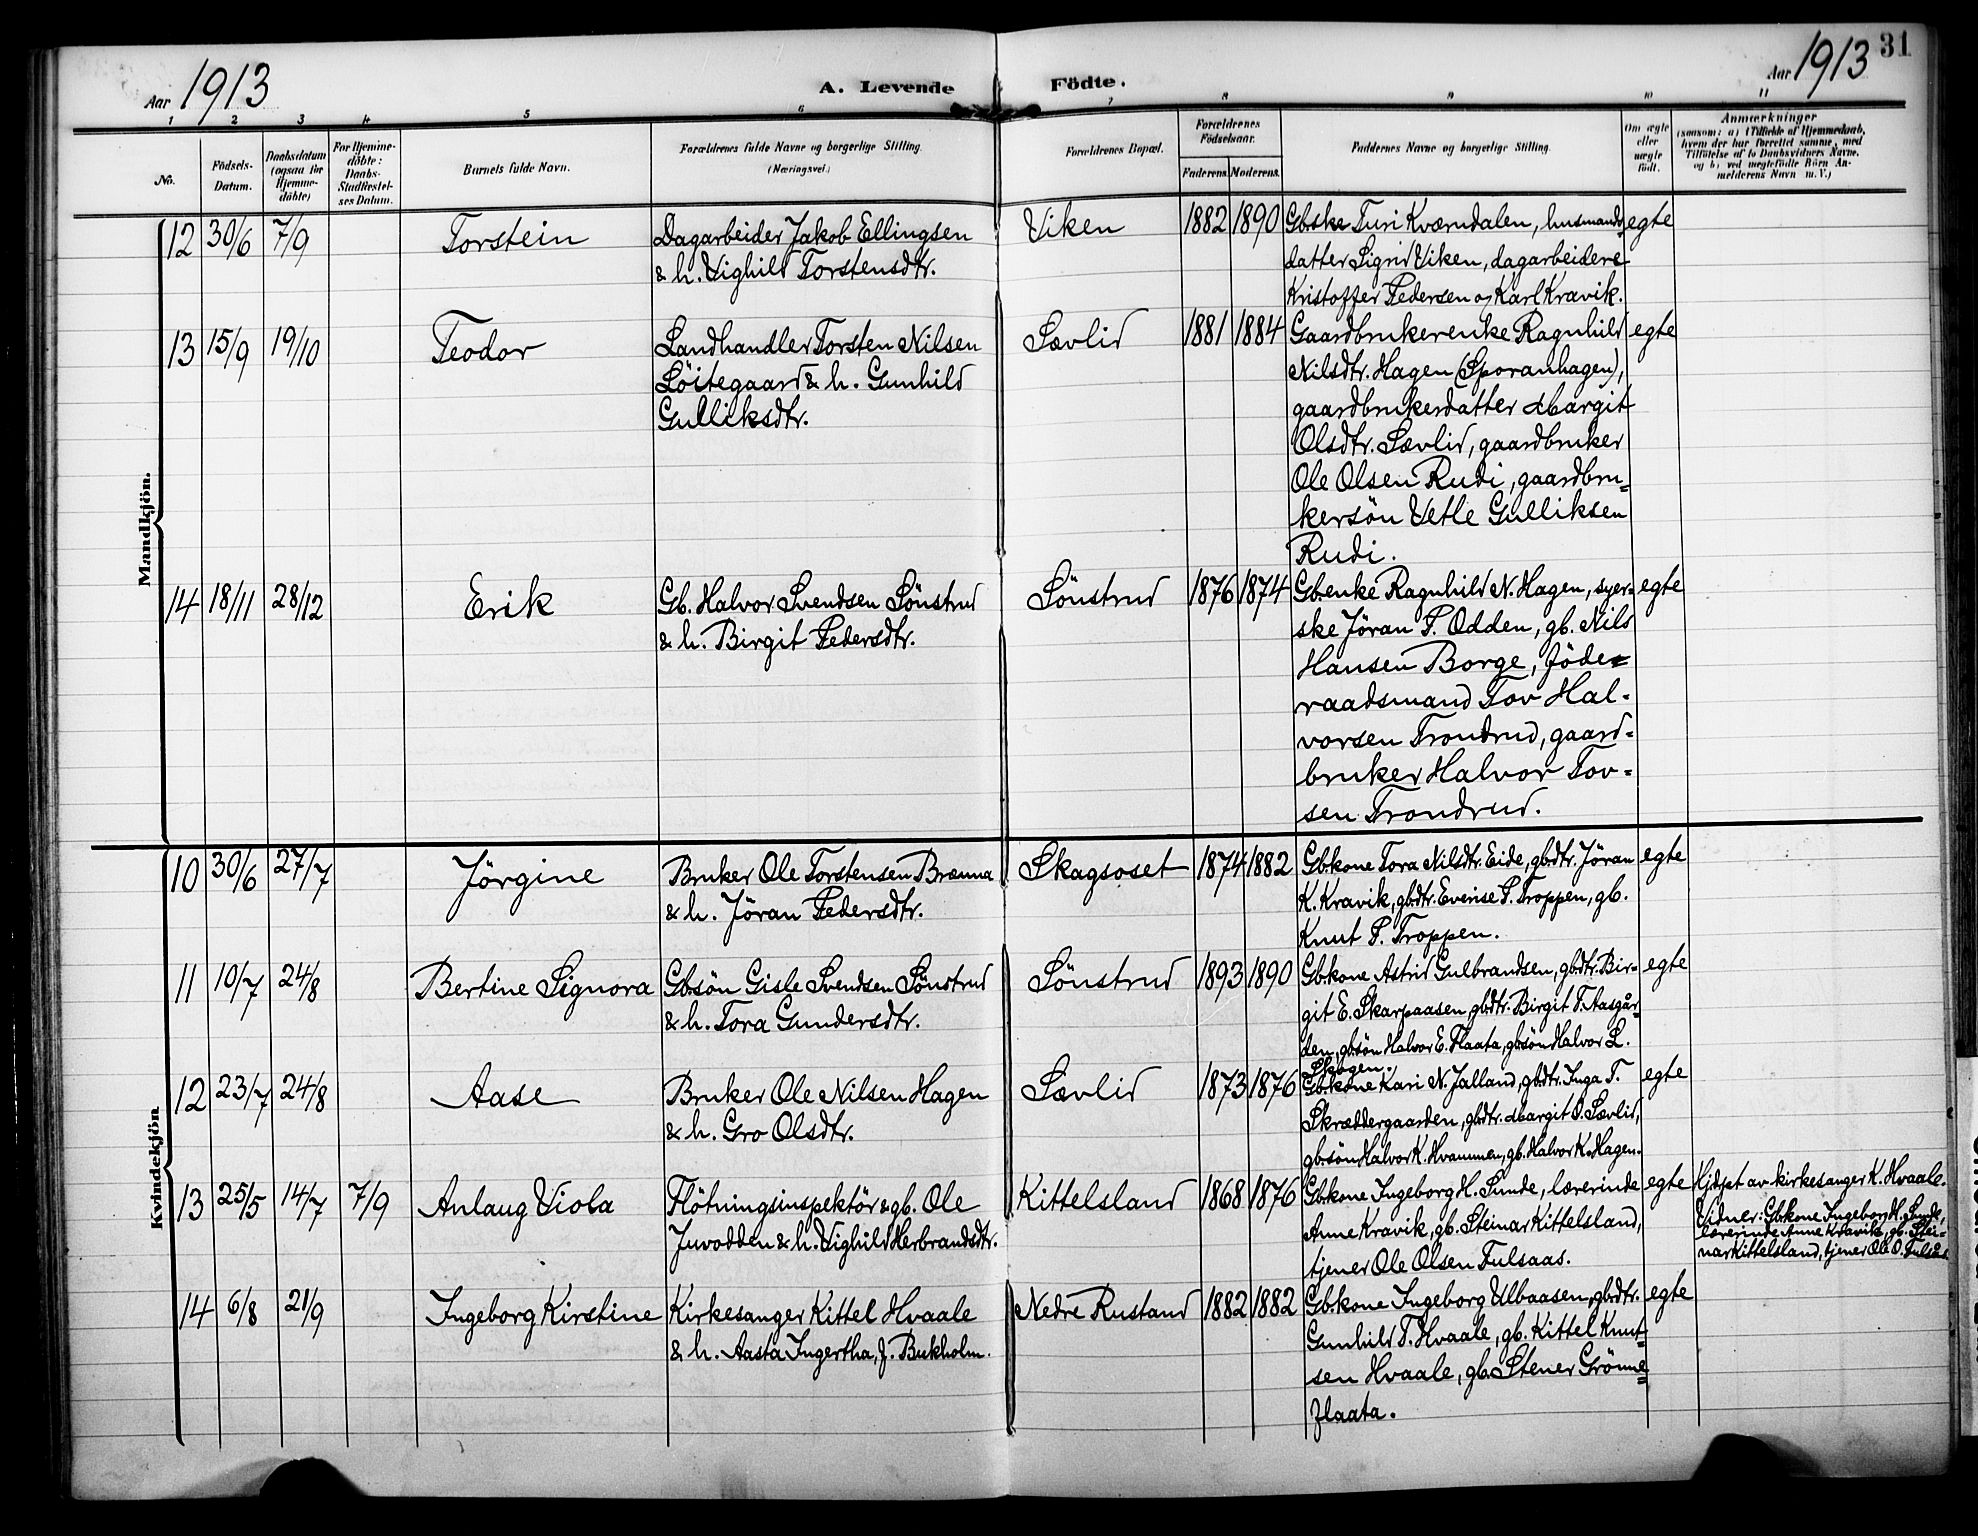 Aar 1913
A. Levende
Födte.
Aar 1913
31
1 2 3 4 5 6 7 8 9 10 11
No.
Födsels-
Datum.
Daabsdatum
(ogsaa for
Hjemme-
döbte)
For Hjemme-
döbte:
Daabs-
Stadfæstel-
ses Datum.
Barnets fulde Navn.
Forældrenes fulde Navne og borgerlige Stilling.
(Næringsvei.)
Forældrenes Bopæl.
Forældrenes
Födselsaar.
Faderens. Moderens.
Faddernes Navne og borgerlige Stilling.
Om ægte
eller
uægte
födt.
Anmærkninger
(saasom: a) i Tilfælde af Hjemmedaab,
hvem der har forrettet samme, med
Tilföielse af to Daabsvidners Navne,
og b) ved uegtefödte Börn An-
melderens Navn m. V.)
Mandkjön.
12 30/6 7/9 Torstein
Dagarbeider Jakob Ellingsen
& h. Vighild Torstensdtr.
Viken 1882 1890
Gbske Turi Kværndalen, husmands-
datter Sigrid Viken, dagarbeidere
Kristoffer Pedersen og Karl Kravik.
egte
13 15/9 19/10 Teodor
Landhandler Torsten Nilsen
Löitegaard & h. Gunhild
Gulliksdtr.
Sævlid 1881 1884
Gaardbrukerenke Ragnhild
Nilsdtr. Hagen (Sporanhagen),
gaardbrukerdatter Margit
Olsdtr. Sævlid, gaardbruker
Ole Olsen Rudi, gaardbru-
kersön Vetle Gulliksen
Rudi.
egte
14 18/11 28/12 Erik
Gb. Halvor Svendsen Sönstrud
& h. Birgit Pedersdtr.
Sönstrud 1876 1874
Gbenke Ragnhild N. Hagen, syer-
ske Jöran P. Odden, gb. Nils
Hansen Borge, föde-
raadsmand Tov Hal-
vorsen Trondrud, gaard-
bruker Halvor Tov-
sen Trondrud.
egte
Kvindekjön
10 30/6 27/7 Jörgine
Bruker Ole Torstensen Brænna
& h. Jöran Pedersdtr.
Skagsoset 1874 1882
Gbkone Tora Nilsdtr. Eide, gbdtr. Jöran
K. Kravik, gbdtr. Everise P. Troppen, gb.
Knut P. Troppen.
egte
11 10/7 24/8 Bertine Signora
Gbsön Gisle Svendsen Sönstrud
& h. Tora Gundersdtr.
Sönstrud 1893 1890
Gbkone Astrid Gulbrandsen, gbdtr. Bir-
git E. Skarpaasen, gbdtr. Birgit T. Aasgår-
den, gbsön Halvor E. Flaata, gbsön Halvor L.
Skogen.
egte
12 23/7 24/8 Aase
Bruker Ole Nilsen Hagen
& h. Gro Olsdtr.
Sævlid 1873 1876
Gbkone Kari N. Jalland, gbdtr. Inga T.
Skræddergaarden, gbdtr. Margit O. Sævlid,
gbsön Halvor K. Hvammen, gb. Halvor K. Hagen.
egte
13 25/5 14/7 7/9 Anlaug Viola
Flötningsinspektör & gb. Ole
Juvodden & h. Vighild Herbrandsdtr.
Kittelsland 1868 1876
Gbkone Ingeborg H. Sunde, lærerinde
Anne Kravik, gb. Steinar Kittelsland,
tjener Ole Olsen Fulsaas.
egte
Hjdøpt av kirkesanger K. Hvaale.
Vidner: Gbkone Ingeborg H. Sunde,
lærerinde Anne Kravik, gb. Stei-
nar Kittelsland, tjener Ole O. Fulsås
14 6/8 21/9 Ingeborg Kirstine
Kirkesanger Kittel Hvaale
& h. Aasta Ingertha, f. Bukholm.
Nedre Rustand 1882 1882
Gbkone Ingeborg Ulbaasen, gbdtr.
Gunhild T. Hvaale, gb. Kittel Knut-
sen Hvaale, gb. Stener Grönne-
flaata.
egte